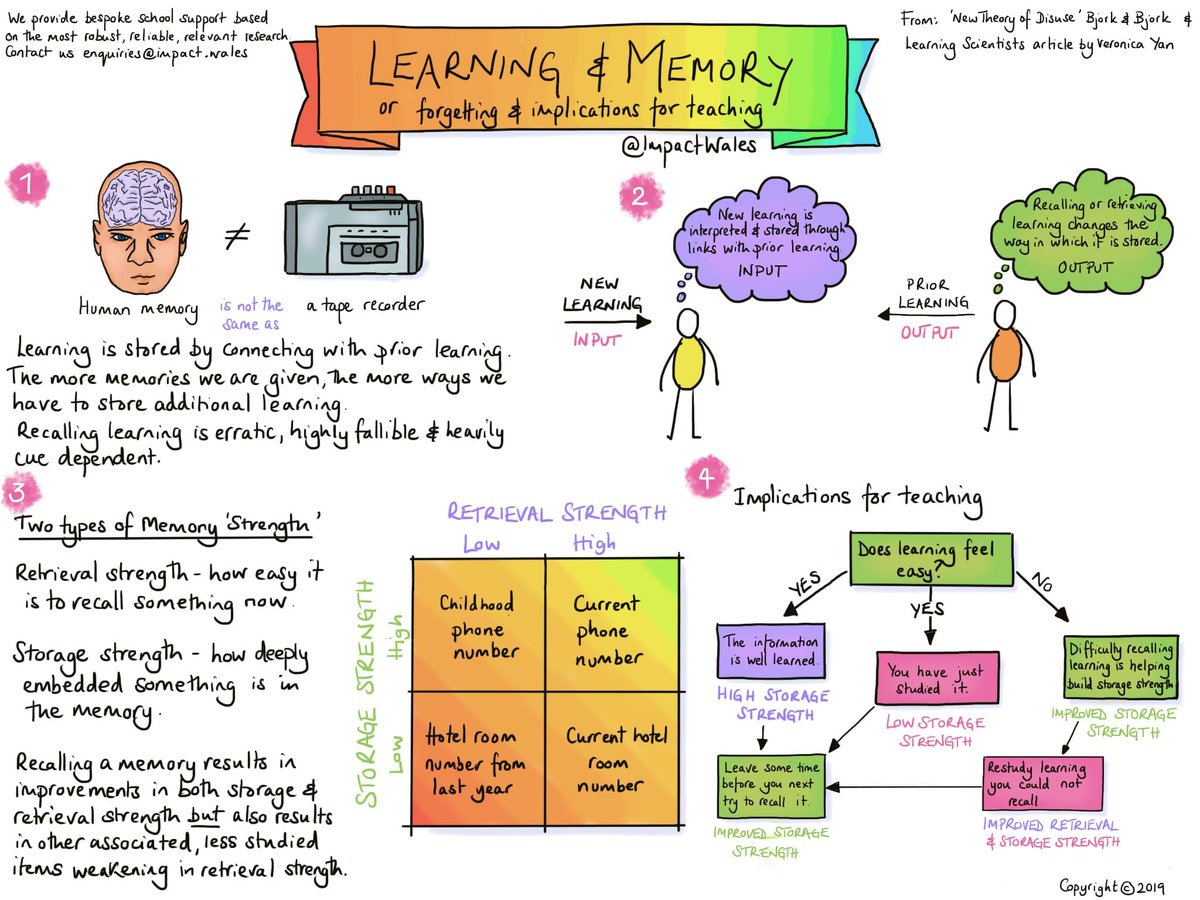 We provide bespoke school support based
on the most robust, reliable, relevant research
Contact us enquiries@impact.wales
LEARNING & MEMORY
or forgetting & implications for teaching
@ImpactWales
From: 'New Theory of Disuse' Bjork & Bjork &
Learning Scientists article by Veronica Yan
1
≠
Human memory
is not the
same as
a tape recorder
Learning is stored by connecting with prior learning.
The more memories we are given, The more ways we
have to store additional learning.
Recalling learning is erratic, highly fallible & heavily
cue dependent.
2
New learning is
interpreted & stored through
links with prior learning.
INPUT
NEW
LEARNING
INPUT
Recalling or retrieving
learning changes the
way in which it is stored.
OUTPUT
PRIOR
LEARNING
OUTPUT
3
Two types of Memory 'Strength'
Retrieval strength - how easy it
is to recall something now.
Storage strength - how deeply
embedded something is in
the memory.
Recalling a memory results in
improvements in both storage &
retrieval strength but also results
in other associated, less studied
items weakening in retrieval strength.
RETRIEVAL STRENGTH
Low
High
STORAGE STRENGTH
High
Low
Childhood
phone
number
Current
phone
number
Hotel room
number from
last year
Current hotel
room
number
4
Implications for teaching
Does learning feel
easy?
YES
YES
NO
The information
is well learned.
HIGH STORAGE
STRENGTH
You have just
studied it.
LOW STORAGE
STRENGTH
Difficulty recalling
learning is helping
build storage strength
IMPROVED STORAGE
STRENGTH
Leave some time
before you next
try to recall it.
IMPROVED STORAGE
STRENGTH
Restudy learning
you could not
recall.
IMPROVED RETRIEVAL
& STORAGE STRENGTH
Copyright © 2019